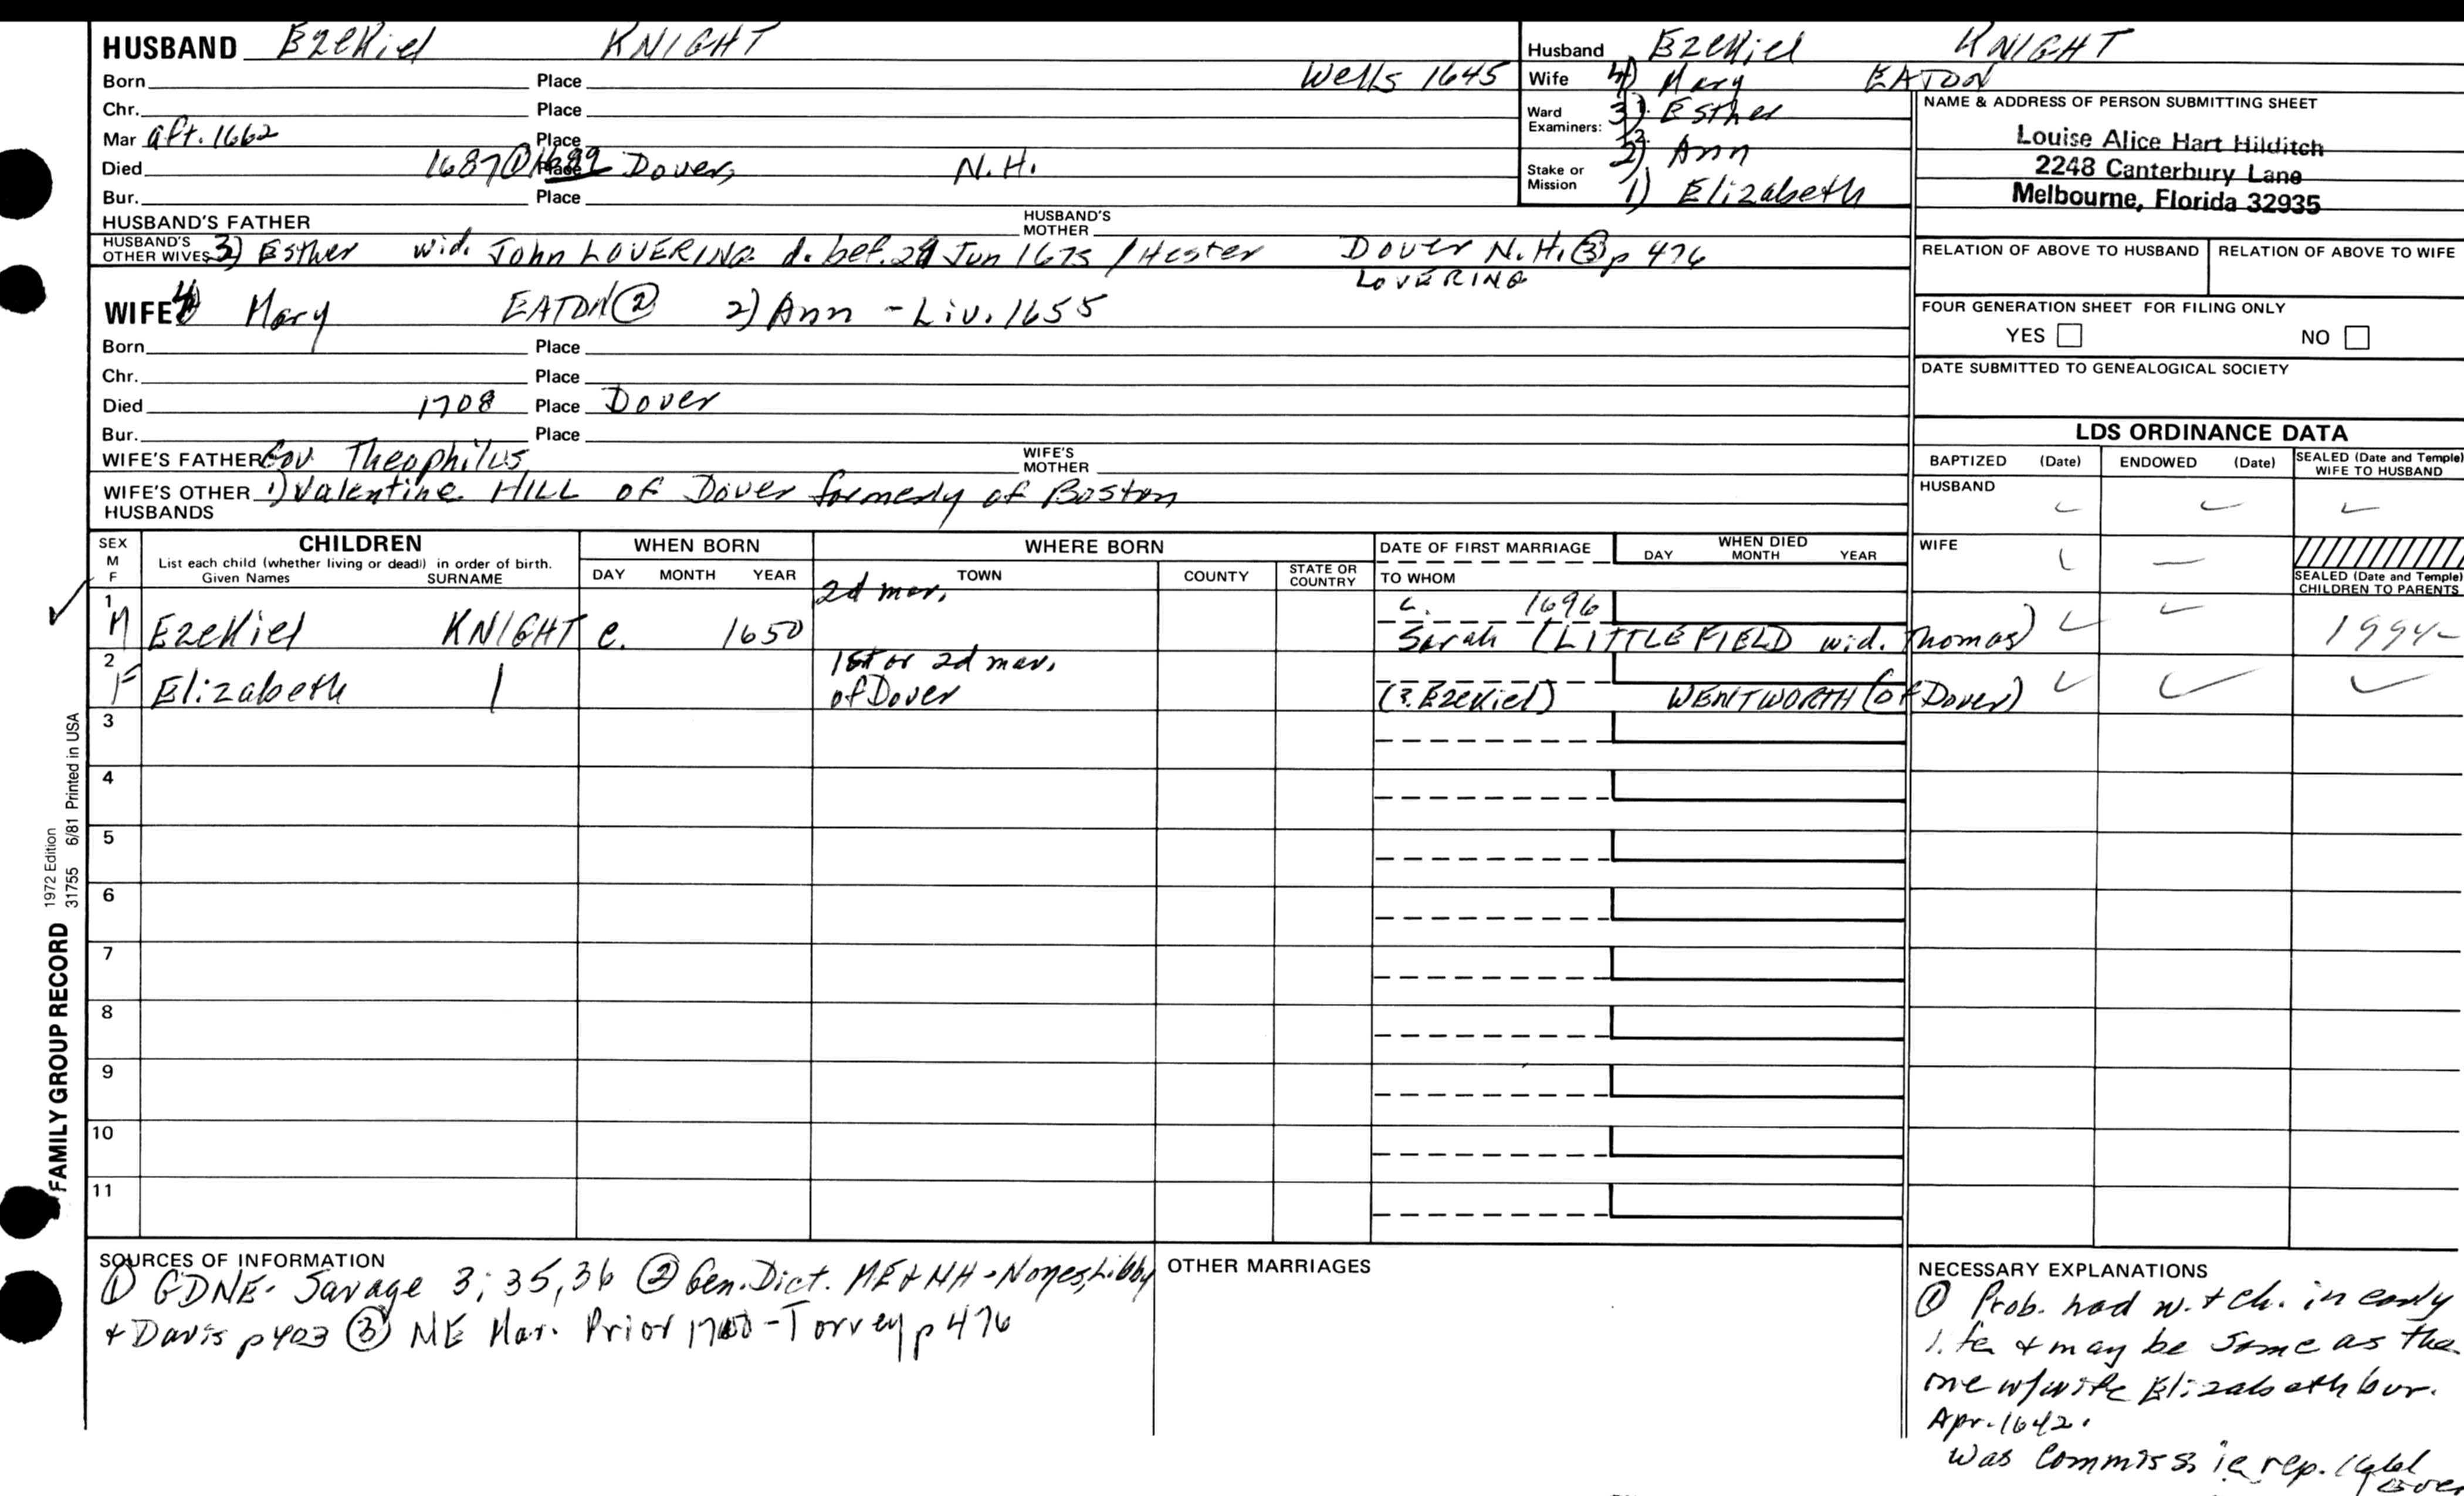 HUSBAND Ezekiel KNIGHT
Born Place Wells 1645
Chr. Place
Mar aft. 1662 Place
Died 1687 ① Place Dover, N.H.
Bur. Place
HUSBAND'S FATHER HUSBAND'S MOTHER
HUSBAND'S OTHER WIVES 3) Esther wid. John LOVERING d. bef. 29 Jun 1675 / Hester LOVERING Dover N.H. ③ p 476
WIFE 4) Mary EATON ② 2) Ann - Liv. 1655
Born Place
Chr. Place
Died 1708 Place Dover
Bur. Place
WIFE'S FATHER Gov Theophilus WIFE'S MOTHER
WIFE'S OTHER HUSBANDS 1) Valentine HILL of Dover formerly of Boston
Husband Ezekiel KNIGHT
Wife 4) Mary EATON
Ward Examiners: 3) Esther
2) Ann
Stake or Mission 1) Elizabeth
NAME & ADDRESS OF PERSON SUBMITTING SHEET
Louise Alice Hart Hilditch
2248 Canterbury Lane
Melbourne, Florida 32935
RELATION OF ABOVE TO HUSBAND RELATION OF ABOVE TO WIFE
FOUR GENERATION SHEET FOR FILING ONLY
YES NO
DATE SUBMITTED TO GENEALOGICAL SOCIETY
LDS ORDINANCE DATA
BAPTIZED (Date) ENDOWED (Date) SEALED (Date and Temple) WIFE TO HUSBAND
HUSBAND
WIFE
SEALED (Date and Temple) CHILDREN TO PARENTS
SEX M F
CHILDREN
List each child (whether living or dead) in order of birth.
Given Names SURNAME
WHEN BORN
DAY MONTH YEAR
WHERE BORN
TOWN COUNTY STATE OR COUNTRY
DATE OF FIRST MARRIAGE
TO WHOM
WHEN DIED
DAY MONTH YEAR
1 2d mar. c. 1696
M Ezekiel KNIGHT c. 1650 Sarah (LITTLEFIELD wid. Thomas) 1994
2 1st or 2d mar.
F Elizabeth of Dover (?. Ezekiel) WENTWORTH (of Dover)
3
4
5
6
7
8
9
10
11
FAMILY GROUP RECORD
1972 Edition
31755 6/81 Printed in USA
SOURCES OF INFORMATION
① GDNE- Savage 3; 35, 36 ② Gen. Dict. ME & NH - Noyes, Libby
+ Davis p 403 ③ NE Mar. Prior 1700 - Torrey p 476
OTHER MARRIAGES
NECESSARY EXPLANATIONS
① Prob. had w. + ch. in early
life + may be same as the
one w/wife Elizabeth bur.
Apr. 1642.
Was